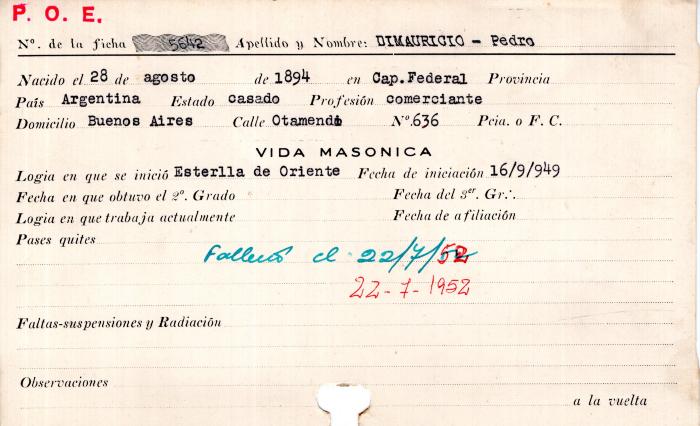 P. O. E.
Nº. de la ficha 5642 Apellido y Nombre: DIMAURICIO - Pedro
Nacido el 28 de agosto de 1894 en Cap.Federal Provincia
País Argentina Estado casado Profesión comerciante
Domicilio Buenos Aires Calle Otamendi Nº.636 Pcia. o F. C.
VIDA MASONICA
Logia en que se inició Esterlla de Oriente Fecha de iniciación 16/9/949
Fecha en que obtuvo el 2º. Grado Fecha del 3er. Gr∴.
Logia en que trabaja actualmente Fecha de afiliación
Pases quites
Falleció el 22/7/52
22-7-1952
Faltas-suspensiones y Radiación
Observaciones
a la vuelta